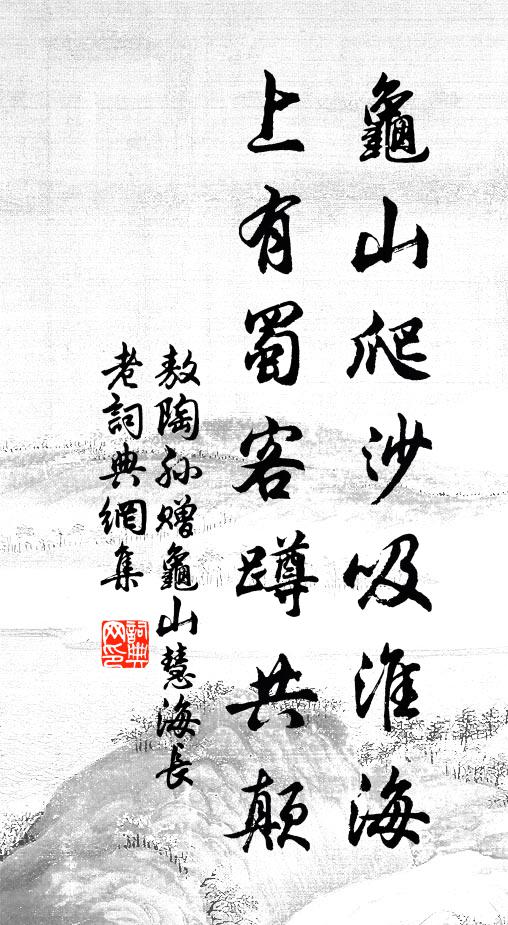 龜山爬沙吸淮海
上有蜀客蹲共顛
敖陶孙赠龜山慧海長
老詞典網集
詞典
网印